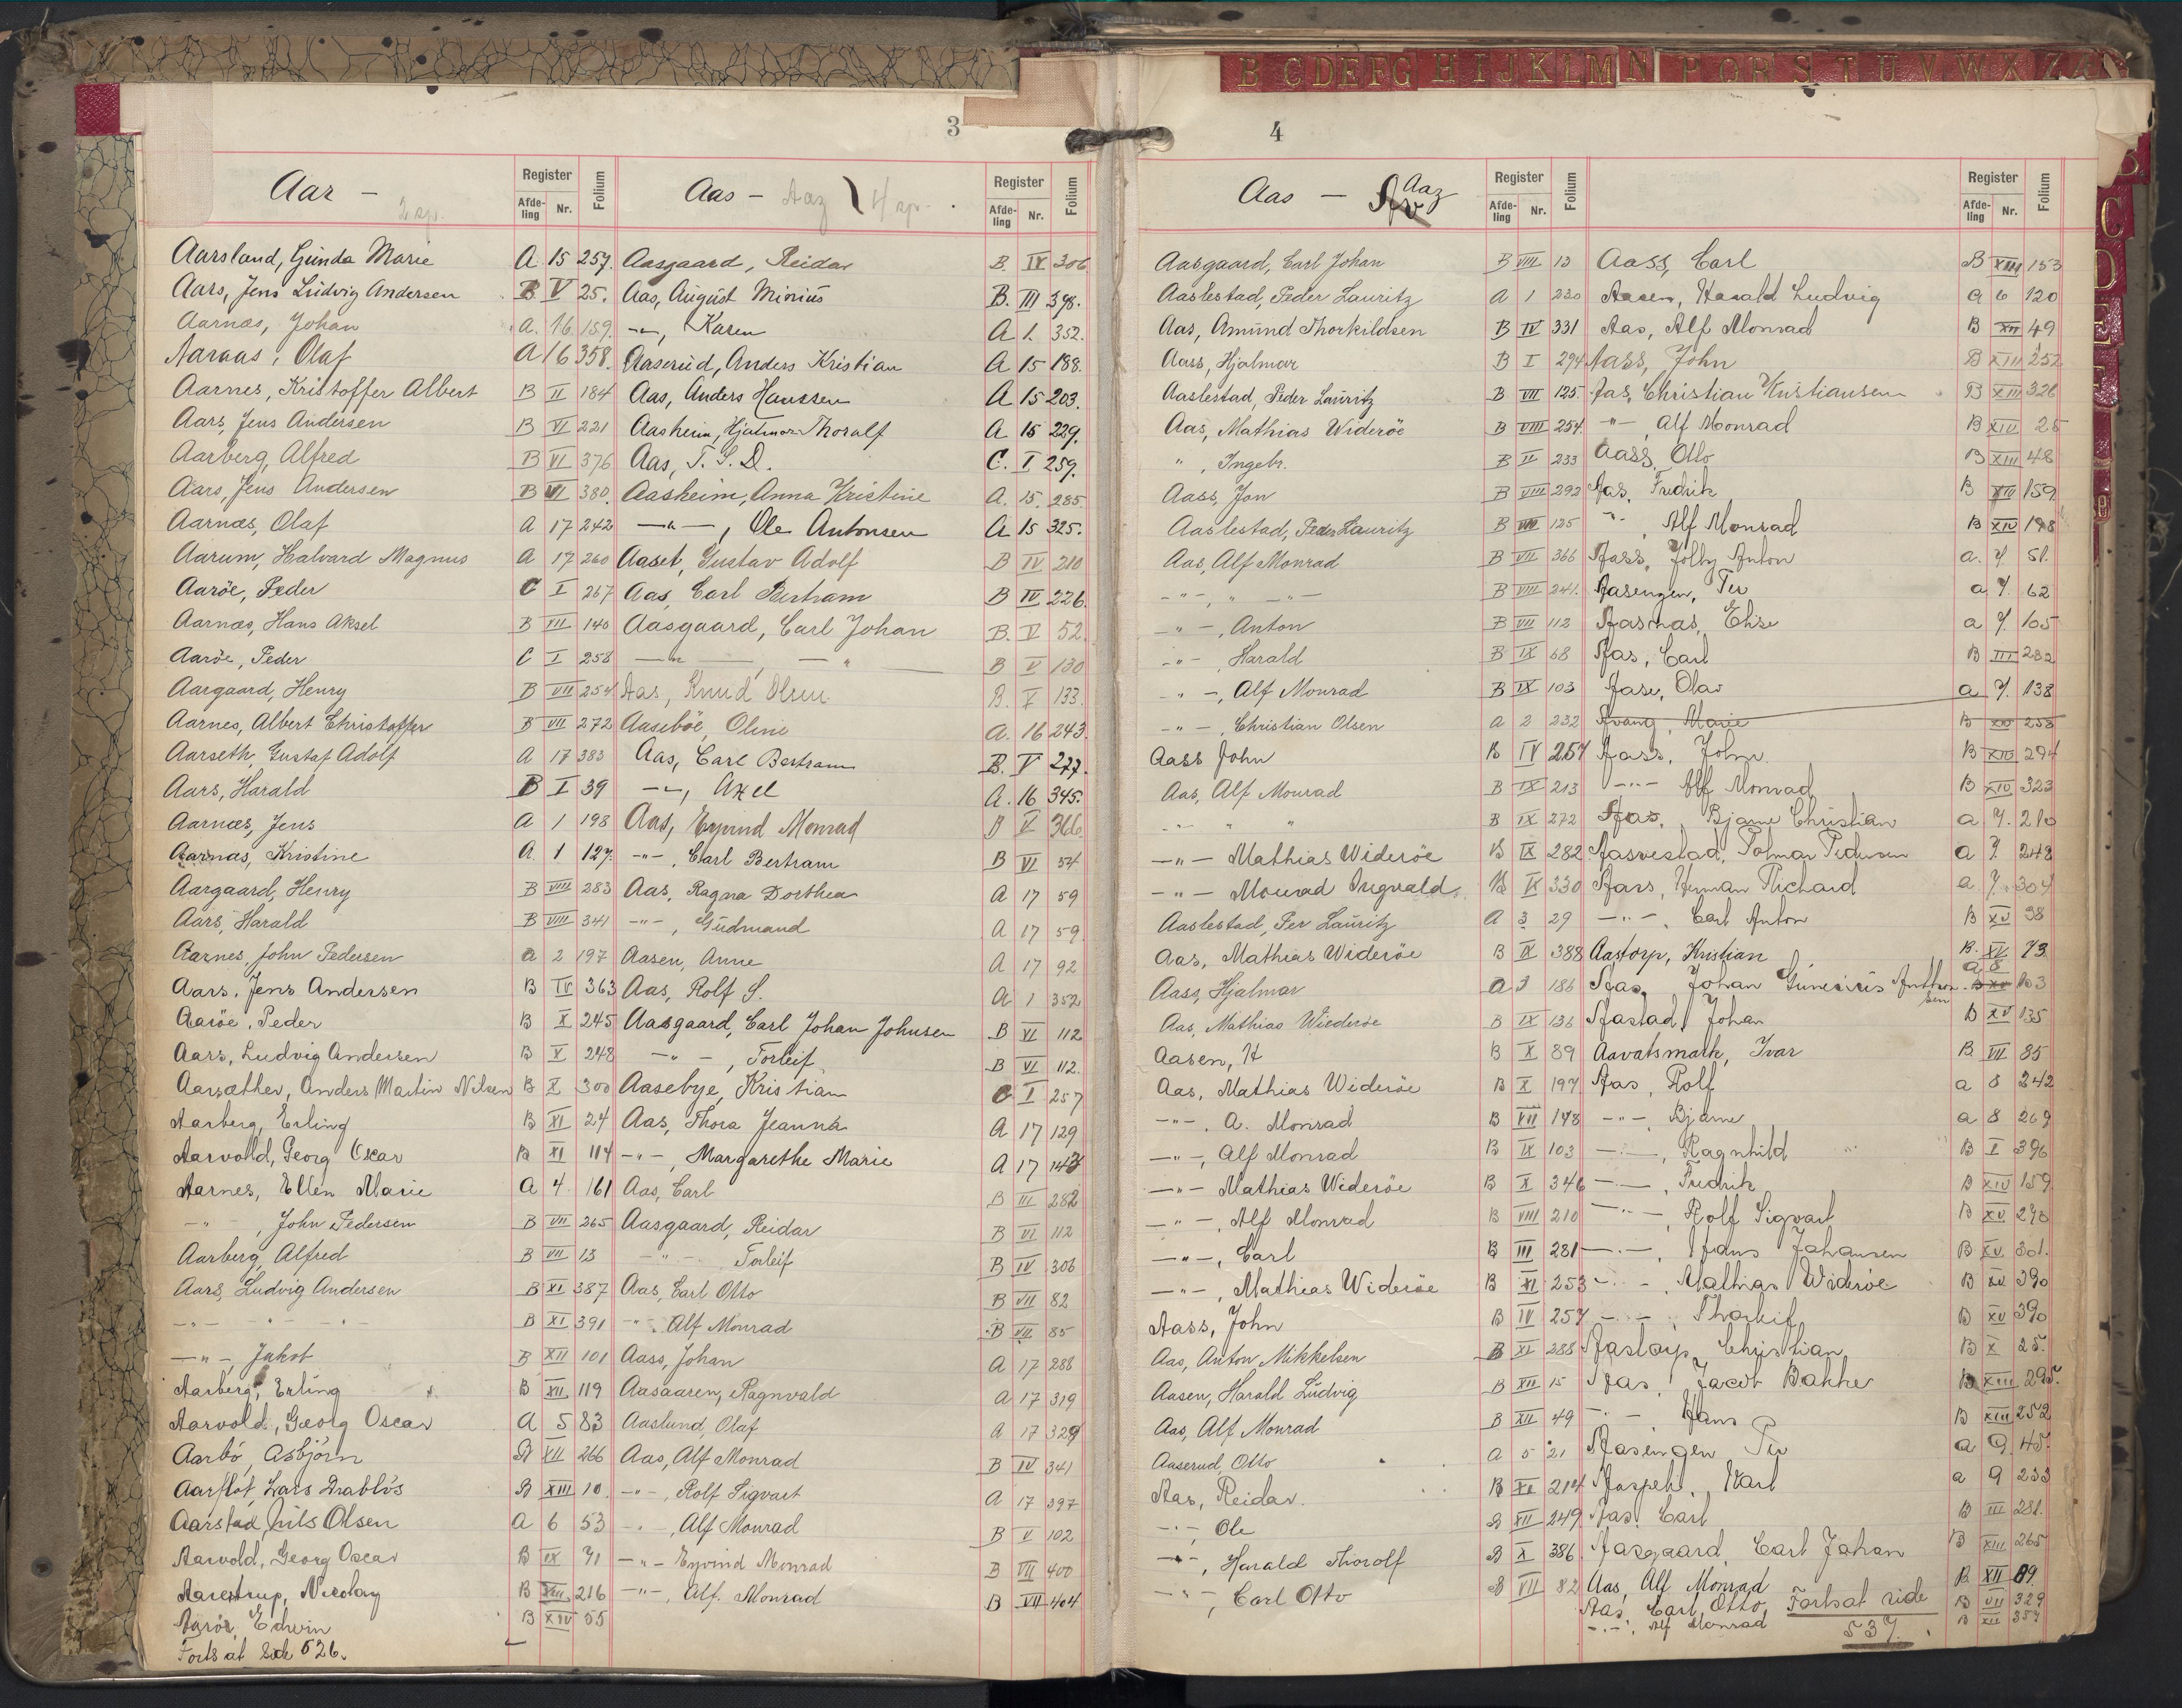 B C D E F G H I J K L M N P Q R S T U V W X Z Æ
3
Aar —
Register
Afde-ling Nr. Folium
Aarsland, Gunda Marie A 15 257.
Aars, Jens Ludvig Andersen B V 25.
Aarnæs, Johan A. 16 159.
Aaraas, Olaf A 16 358.
Aarnes, Kristoffer Albert B II 184
Aars, Jens Andersen B VI 221
Aarberg, Alfred B VI 376
Aars, Jens Andersen B VI 380.
Aarnæs, Olaf A 17 242
Aarum, Halvard Magnus A 17 260
Aaröe, Peder C I 267
Aarnæs, Hans Aksel B VII 140
Aaröe, Peder C I 258
Aargaard, Henry B VII 254
Aarnes, Albert Christoffer B VII 272
Aarseth, Gustaf Adolf A 17 383
Aars, Harald B I 39
Aarnæs, Jens A 1 198
Aarnæs, Kristine A. 1 127.
Aargaard, Henry B VIII 283
Aars, Harald B VIII 341
Aarnes, John Pedersen a 2 197
Aars, Jens Andersen B IV 363
Aaröe, Peder B X 245
Aars, Ludvig Andersen B X 248
Aarsæther, Anders Martin Nilsen B X 300
Aarberg, Erling B XI 24
Aarvold, Georg Oscar B XI 114
Aarnes, Ellen Marie A 4 161
—"—, John Pedersen B VII 265
Aarberg, Alfred B VII 13
Aars, Ludvig Andersen B XI 387
—"— —"— B XI 391
—"—, Jakob B XII 101
Aarberg, Erling B XII 119
Aarvold, Georg Oscar A 5 83
Aarbö, Asbjörn B XII 266
Aarflot, Lars Drabløs B XIII 10
Aarstad, Nils Olsen A 6 53
Aarvold, Georg Oscar B IX 71
Aarestrup, Nicolay B XIII 216
Aaröe, Edwin B XIV 55
Forts at Side 526.
Aas — Aaz
Register
Afde-ling Nr. Folium
Aasgaard, Reidar B. IX 306
Aas, August Minius B. III 398.
—"—, Karen A 1. 352.
Aaserud, Anders Kristian A 15 188.
Aas, Anders Hanssen A 15 203.
Aasheim, Hjalmar Thoralf A 15 229.
Aas, T. S. D. C. I 259.
Aasheim, Anna Kristine A. 15. 285.
—"—, Ole Antonsen A 15 325.
Aaset, Gustav Adolf B IV 210
Aas, Carl Bertram B IV 226.
Aasgaard, Carl Johan B. V 52.
—"— —"— B V 130
Aas, Knud Olsen B. V 133.
Aaseböe, Oline A. 16 243.
Aas, Carl Bertram B. V 277.
—"—, Axel A. 16 345.
Aas, Eyvind Monrad B V 366.
—"—, Carl Bertram B VI 54
Aas, Ragna Dorthea A 17 59
—"—, Gudmund A 17 59
Aasen, Anne A 17 92
Aas, Rolf S. A 1 352
Aasgaard, Carl Johan Johnsen B VI 112
—"—, Torleif B VI 112.
Aasebye, Kristian C I 257
Aas, Thora Jeanna A 17 129
—"—, Margarethe Marie A 17 143
Aas, Carl B III 282
Aasgaard, Reidar B VI 112
—"— Torleif B IV 306
Aas, Carl Otto B VII 82
—"— Alf Monrad B VII 85
Aass, Johan A 17 288
Aasaaren, Ragnvald A 17 319
Aaslund, Olaf A 17 329
Aas, Alf Monrad B IV 341
—"—, Rolf Sigvart A 17 397
—"—, Alf Monrad B V 102
—"— Eyvind Monrad B VII 400
—"—, Alf. Monrad B VII 404
4
Aas — Aaz
Register
Afde-ling Nr. Folium
Aasgaard, Carl Johan B VIII 13
Aaslestad, Peder Lauritz A 1 230
Aas, Amund Thorkildsen B IV 331
Aass, Hjalmar B I 294
Aaslestad, Peder Lauritz B VII 125.
Aas, Mathias Wideröe B VIII 254.
", Ingebr. B II 233
Aass, Jon B VIII 292
Aaslestad, Peder Lauritz B VIII 125
Aas, Alf Monrad B VII 366
—"—, " —"— B VIII 241.
—"—, Anton B VII 112
—"— Harald B IX 68
—"—, Alf Monrad B IX 103
—"—, Christian Olsen A 2 232
Aass John B IV 257
Aas, Alf Monrad B IX 213
—"— " " B IX 272
—"— Mathias Wideröe B IX 282
—"— Monrad Ingvald B IX 330
Aaslestad, Per Lauritz A 3 29
Aas, Mathias Wideröe B IX 388
Aass, Hjalmar a 3 186
Aas, Mathias Wiederöe B IX 136
Aasen, H B X 89
Aas, Mathias Wideröe B X 197
—"—, A. Monrad B VII 148
—"—, Alf Monrad B IX 103
—"— Mathias Wideröe B X 346
—"—, Alf Monrad B VIII 210
—"—, Carl B III 281
—"—, Mathias Wideröe B XI 253
Aass, John B IV 257
Aas, Anton Mikkelsen B XI 288
Aasen, Harald Ludvig B XII 15
Aas, Alf Monrad B XII 49
Aaserud, Otto A 5 21
Aas, Reidar. B XI 214
—"— Ole B XII 249
—"—, Harald Thorolf B X 386
—"—, Carl Otto B VII 82
Register
Afde-ling Nr. Folium
Aass, Carl B XIII 153
Aasen, Harald Ludvig a 6 120
Aas, Alf Monrad B XII 49
Aass, John B XIII 252
Aas, Christian Kristiansen B XIII 326
—"—, Alf Monrad B XIII 25
Aass, Otto B XIII 48
Aas, Fredrik B XIV 159
—"— Alf Monrad B XIV 188
Aass, Jolly Anton a. 7. 51.
Aasengen, Per a 7. 62
Aasnas, Ehse a 7. 105
Aas, Carl B III 282
Aase, Olav a 7. 138
Avang, Marie B XIV 253
Aass, John B XIV 294
—"— Alf Monrad B XIV 323
Aas, Bjarne Christian a 7. 210
Aasvestad, Tolmar Pedersen a 7 248
Aars, Herman Richard a. 7. 304
—"—, Carl Anton B XV 38
Aastorp, Kristian B. XV 73
Aas, Johan Anthonsen a 8 103
Aastad, Johan B XV 135
Aavatsmark, Ivar B VII 85
Aas, Rolf a 8 242
—"—, Bjarne a 8 269
—"—, Ragnhild B I 396
—"—, Fredrik B XIV 159
—"—, Rolf Sigvart B XV 298
—"—, Hans Johansen B XV 301.
—"—, Mathias Wideröe B XV 390
—"—, Thorleif B XV 390
Aastorp, Christian B X 25.
Aas, Jacob Bakke B XIII 295.
—"—, Hans B XIII 252
Aasengen Per a 9. 45.
Karl a 9 233
Aas, Carl B III 281.
Aasgaard, Carl Johan B XIII 265
Aas, Alf Monrad B XII 89
Aas, Carl Otto, B VII 329
—"—, Alf Monrad B XII 357
Fortsat side 537.